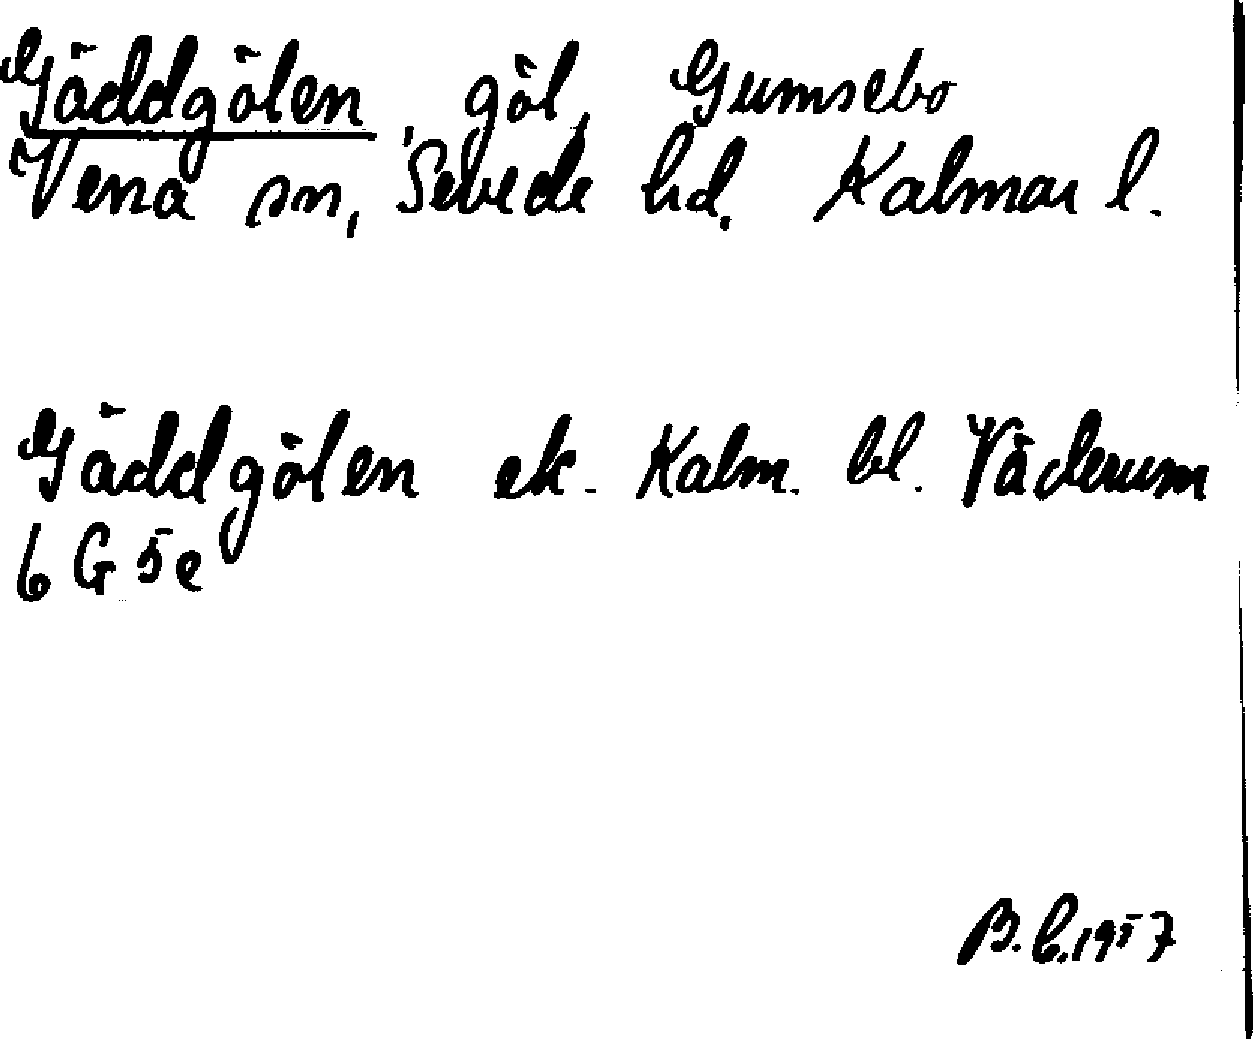 Gäddgölen, göl, Gumsebo
Vena sn, Sevede hd. Kalmar l.
Gäddgölen ek. Kalm. bl. Väderum
6 G 5e
B.L. 1957